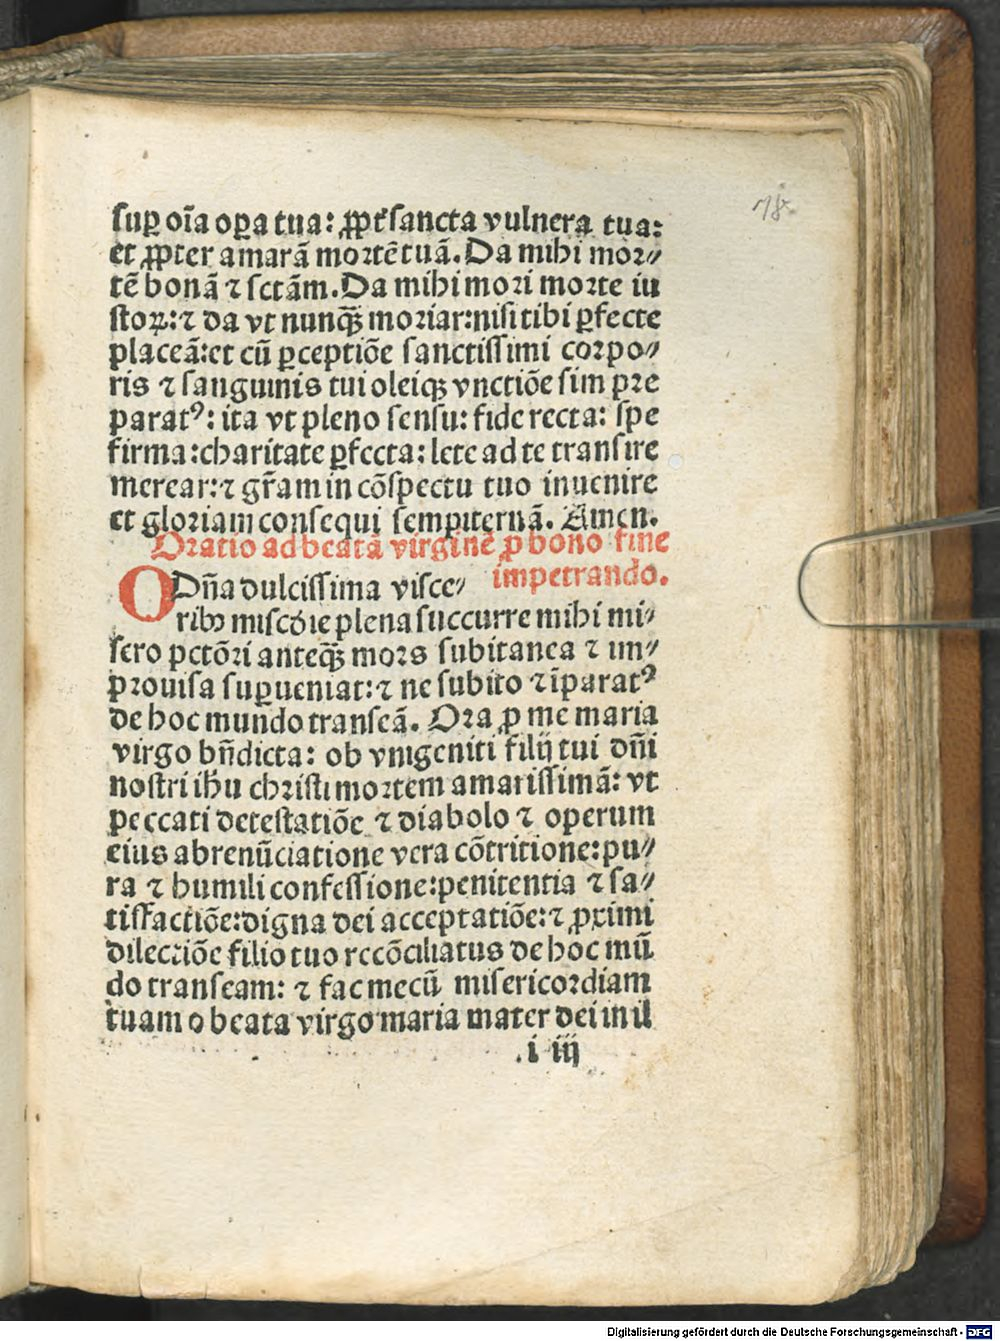 78
suꝑ oīa oꝑa tua: ꝓpt̄ sancta vulnera tua:
et ꝓpter amarā mortē tuā. Da mihi mor⸗
tē bonā ⁊ sctām. Da mihi mori morte iu
stoꝝ: ⁊ da vt nunq̄ꝫ moriar: nisi tibi ꝑfecte
placeā: et cū ꝑceptiōe sanctissimi corpo⸗
ris ⁊ sanguinis tui oleiqꝫ vnctiōe sim pre
paratꝰ: ita vt pleno sensu: fide recta: spe
firma: charitate ꝑfecta: lete ad te transire
merear: ⁊ gr̄am in cōspectu tuo inuenire
et gloriam consequi sempiternā. Amen.
Oratio ad beatā virginē ꝓ bono fine
impetrando.
O Dn̄a dulcissima visce⸗
ribꝫ miscd̄ie plena succurre mihi mi⸗
sero pctōri anteq̄ꝫ mors subitanea ⁊ im⸗
prouisa suꝑueniat: ⁊ ne subito ⁊ īparatꝰ
de hoc mundo transeā. Ora ꝓ me maria
virgo bn̄dicta: ob vnigeniti filij tui dn̄i
nostri ih̄u christi mortem amarissimā: vt
peccati detestatiōe ⁊ diabolo ⁊ operum
eius abrenūciatione vera cōtritione: pu⸗
ra ⁊ humili confessione: penitentia ⁊ sa⸗
tisfactiōe: digna dei acceptatiōe: ⁊ ꝓximi
dilectiōe filio tuo recōciliatus de hoc mū
do transeam: ⁊ fac mecū misericordiam
tuam o beata virgo maria mater dei in il
.i iij
Digitalisierung gefördert durch die Deutsche Forschungsgemeinschaft - DFG